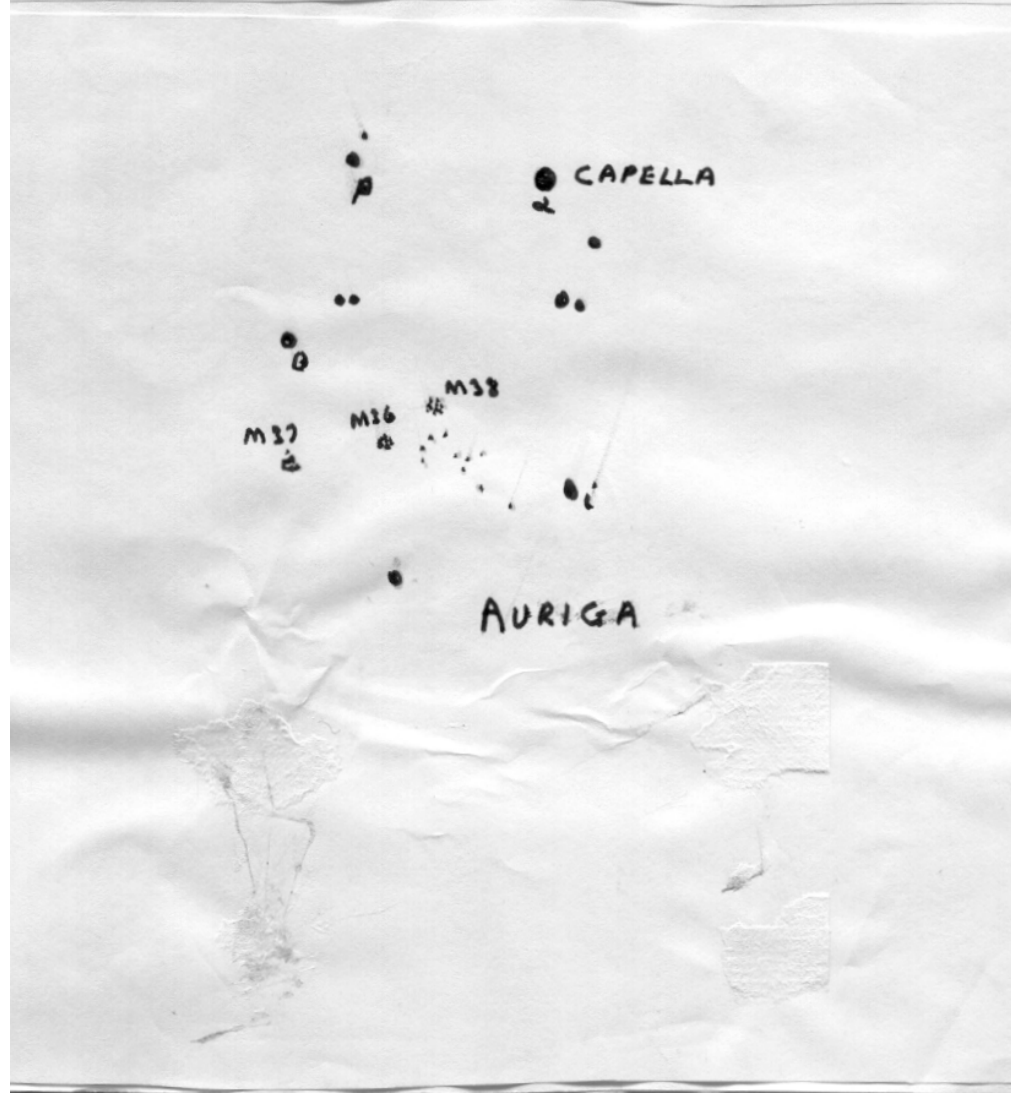 CAPELLA
α
β
θ
M38
M36
M37
ι
AURIGA